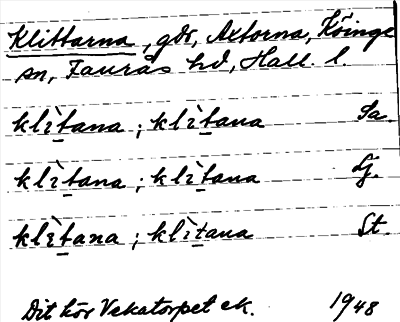 Klittarna, gdr, Axtorna, Köinge
sn, Faurås hd, Hall. l.
klìt̲ana ; klìt̲ana Sa.
klìt̲ana ; klìt̲ana Lj.
klìt̲ana ; klìt̲ana St.
Dit hör Vekatorpet ek. 1948